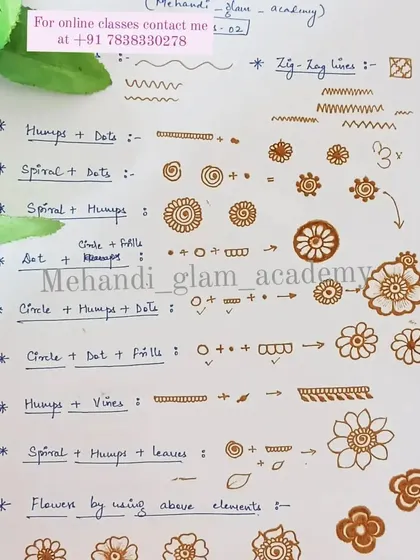 (Mehandi_glam_academy)
For online classes contact me
at +91 7838330278
s-02
* Zig-Zag lines :-
* Humps + Dots :-
* Spiral + Dots :-
* Spiral + Humps :
Circle + frills
* Dot +
Mehandi_glam_academy
* Circle + Humps + Dots :
* Circle + Dot + frills :
* Humps + Vines :
* Spiral + Humps + leaves :
* Flowers by using above elements :-